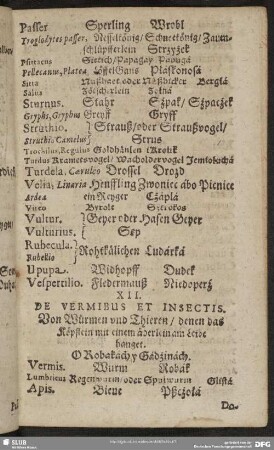 Passer Sperling Wrobl
Troglodytes passer. Nesselkönig/ Schneekönig/ Zaun-
schlüpfferlein Strzyżek
Psittacus Sittich/ Papagay Papugá
Pellecanus, Platea LöffelGans Płaskonosá
Sitta Nußhaer oder Nußbicker Berglá
Salus
Sturnus. Stahr Szpak/ Szpaczek
Gryps, Gryphus Greyff Gryff
Struthio. Strauß/ oder Straußvogel/
Struthio Camelus Strus
Trochilus, Regulus Goldhänlein Krolik
Turdus Krametsvogel/ Wacholdervogel Jemiołuchá
Turdela. Caruleo Drossel Drozd
Volia, Linaria Henffling Dzwoniec ábo Picnice
Ardea ein Reyger Czáplá
Vultur. Geyer oder Hasen Geyer
Vulturius. Sęp
Rubecula. Rohtkälichen Ludarká
Rubelio
Upupa. Widhopff Dudek
Vespertilio. Fledermauß Niedoperz
XII.
DE VERMIBUS ET INSECTIS.
Von Würmen vnd Thieren/ denen das
Köpflein mit einem äderlein am Leibe
hanget.
O Robakách y Gádzinách.
Vermis. Wurm Robák
Lumbricus Regenwurm/ oder Spulwurm Glistá
Apis. Biene Pszczołá
Do-
SLUB